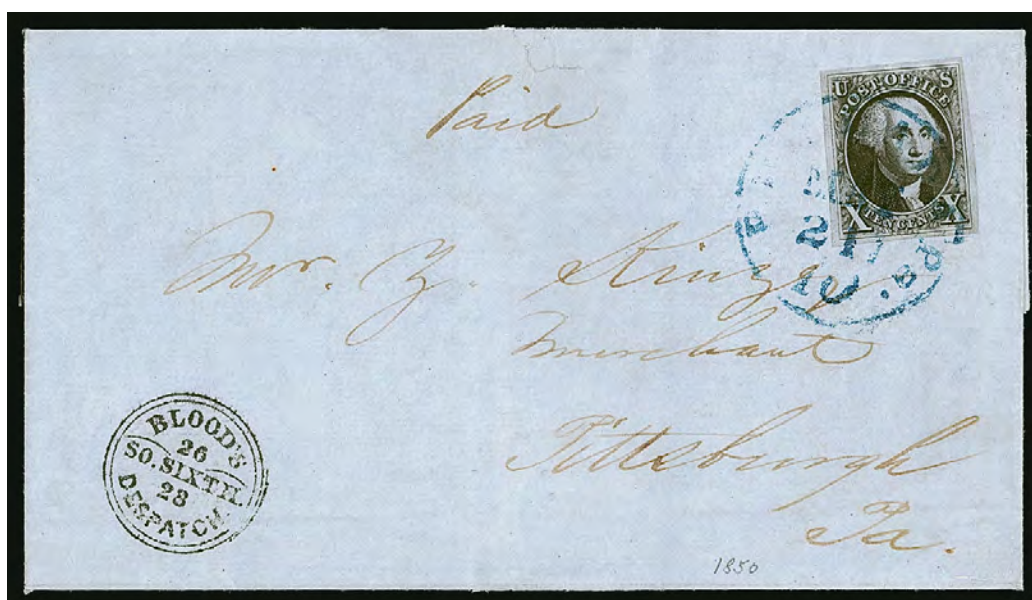 Paid
U S
POST OFFICE
X TEN CENTS X
24
10
Pa.
Mr. Z. Kinzey
Merchant
Pittsburgh
Pa.
BLOOD'S
26
SO. SIXTH.
28
DESPATCH
1850